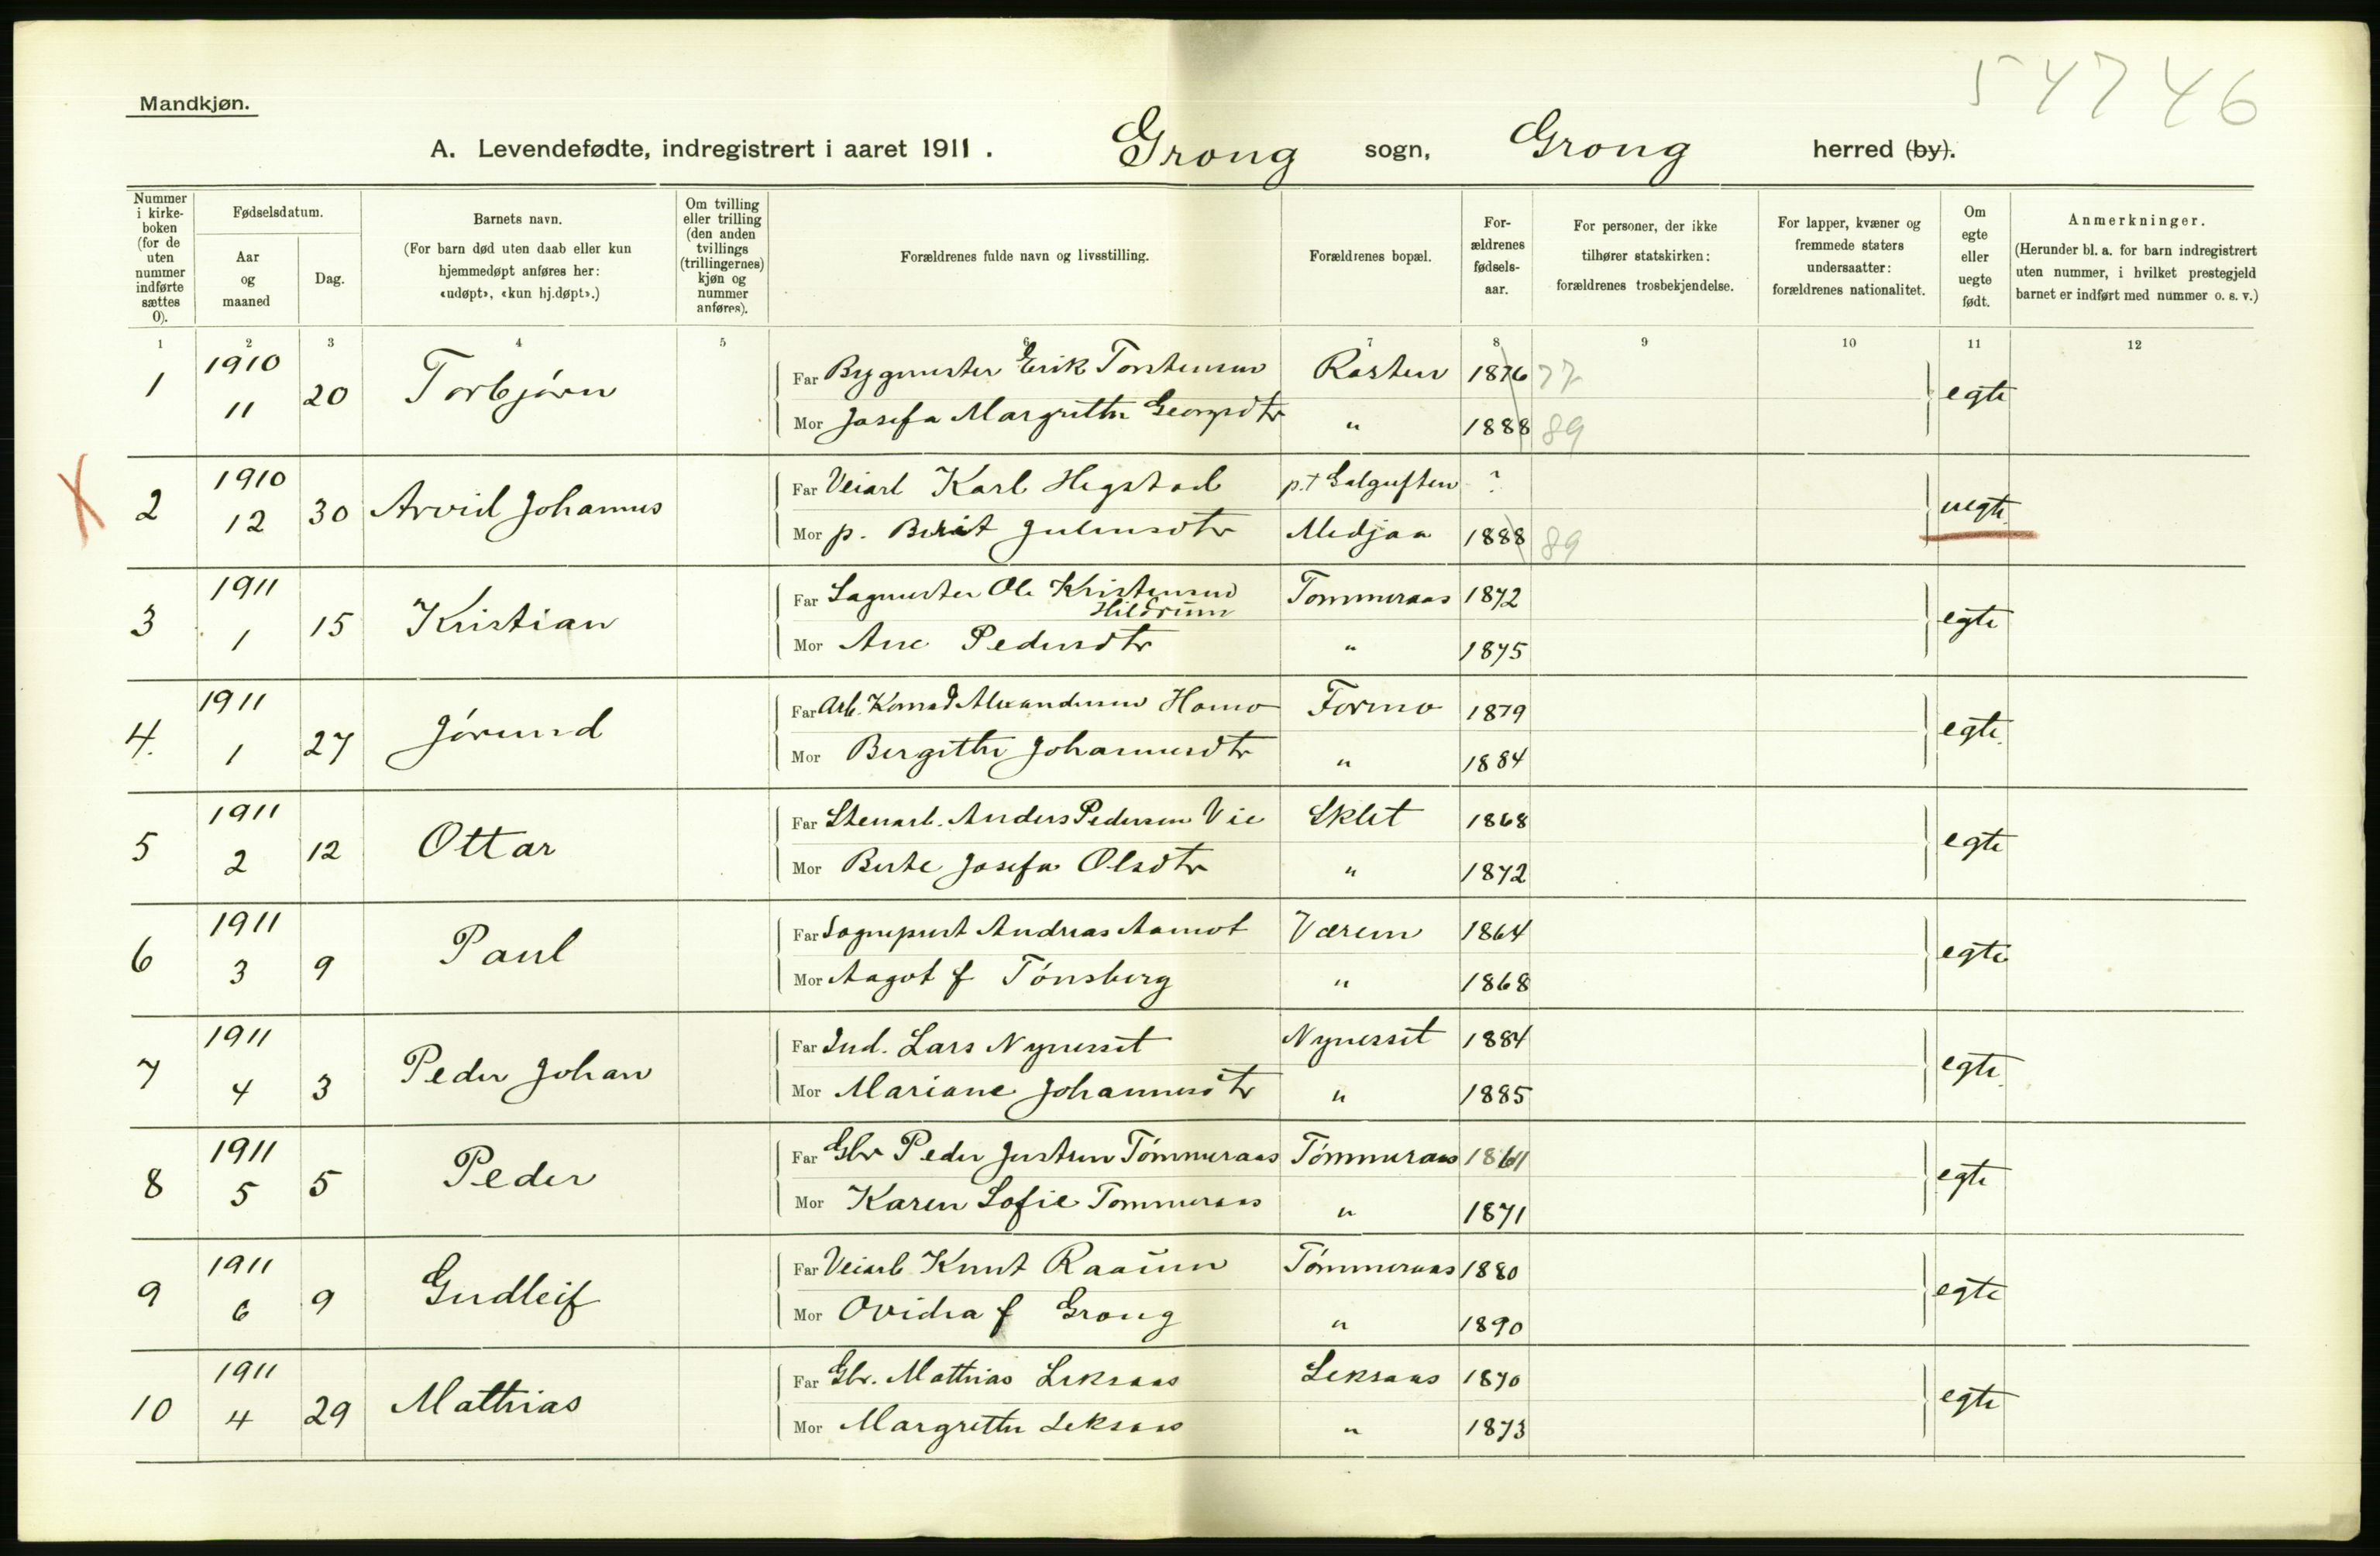 54746
Mandkjøn.
A. Levendefødte, indregistrert i aaret 1911. Grong sogn, Grong herred (by).
Nummer i kirke-boken (for de uten nummer indførte sættes 0).
Fødselsdatum.
Aar og maaned
Dag.
Barnets navn.
(For barn død uten daab eller kun hjemmedøpt anføres her: «udøpt», «kun hj.døpt».)
Om tvilling eller trilling (den anden tvillings (trillingernes) kjøn og nummer anføres).
Forældrenes fulde navn og livsstilling.
Forældrenes bopæl.
For-ældrenes fødsels-aar.
For personer, der ikke tilhører statskirken: forældrenes trosbekjendelse.
For lapper, kvæner og fremmede staters undersaatter: forældrenes nationalitet.
Om egte eller uegte født.
Anmerkninger.
(Herunder bl. a. for barn indregistrert uten nummer, i hvilket prestegjeld barnet er indført med nummer o. s. v.)
1 2 3 4 5 6 7 8 9 10 11 12
1 1910 11 20 Torbjørn egte
Far Bygmester Erik Torstensen Rosten 1876 77
Mor Josefa Margrethe Georgsdtr " 1888 89
X 2 1910 12 30 Arvid Johannes uegte
Far Veiarb Karl Hegstad p.t. ?
Mor p. Berit Julensdtr Medjaa 1888 89
3 1911 1 15 Kristian egte
Far Sagmester Ole Kristensen Hildrum Tømmeraas 1872
Mor Ane Pedersdtr " 1875
4. 1911 1 27 Jørund egte
Far Arb. Konrad Alexandersen Homo Formo 1879
Mor Bergitte Johannesdtr " 1884
5 1911 2 12 Ottar egte
Far Stenarb. Anders Pedersen Vie Sklet 1868
Mor Berte Josefa Olsdtr " 1872
6 1911 3 9 Paul egte
Far Sogneprest Andreas Aamot Værem 1864
Mor Aagot f Tønsberg " 1868
7 1911 4 3 Peder Johan egte
Far Ind. Lars Nynesset Nynesset 1884
Mor Mariane Johannesdtr " 1885
8 1911 5 5 Peder egte
Far Gbr Peder Justsen Tømmeraas Tømmeraas 1861
Mor Karen Sofie Tømmeraas " 1871
9 1911 6 9 Gudleif egte
Far Veiarb Knut Raaum Tømmeraas 1880
Mor Ovidia f Grong " 1890
10 1911 4 29 Mathias egte
Far Gbr. Mathias Leksaas Leksaas 1870
Mor Margrethe Leksaas " 1873